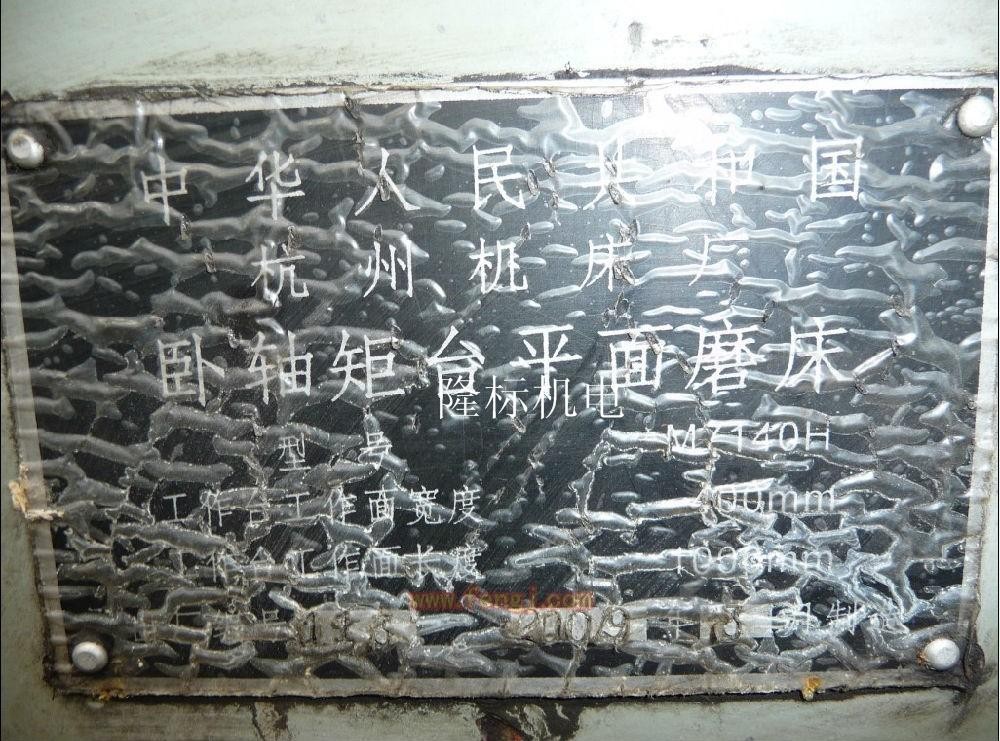 中华人民共和国
杭州机床厂
卧轴矩台平面磨床
隆标机电
型号 M7140H
工作台工作面宽度 400mm
工作台工作面长度 1000mm
www.fengj.com
2009年 月制造